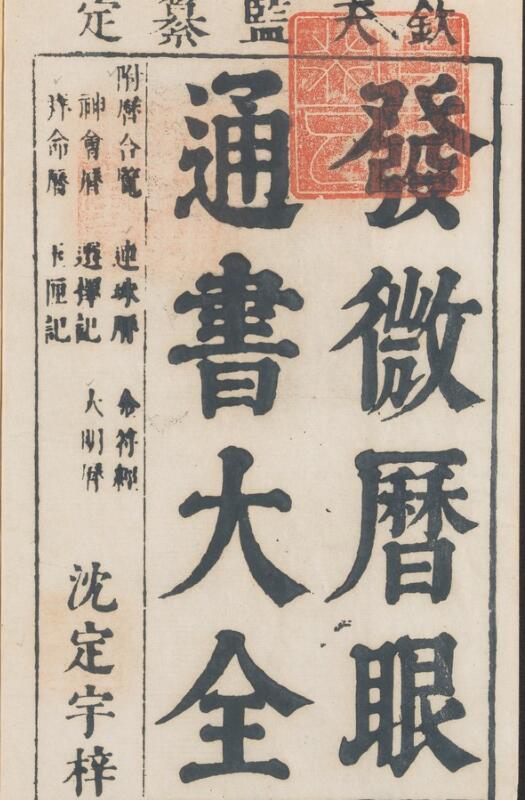 欽天監纂定
發微曆眼
通書大全
附曆合覽 連珠曆 合符經
神會曆 選擇記 大明曆
命曆 玉匣記
沈定宇梓